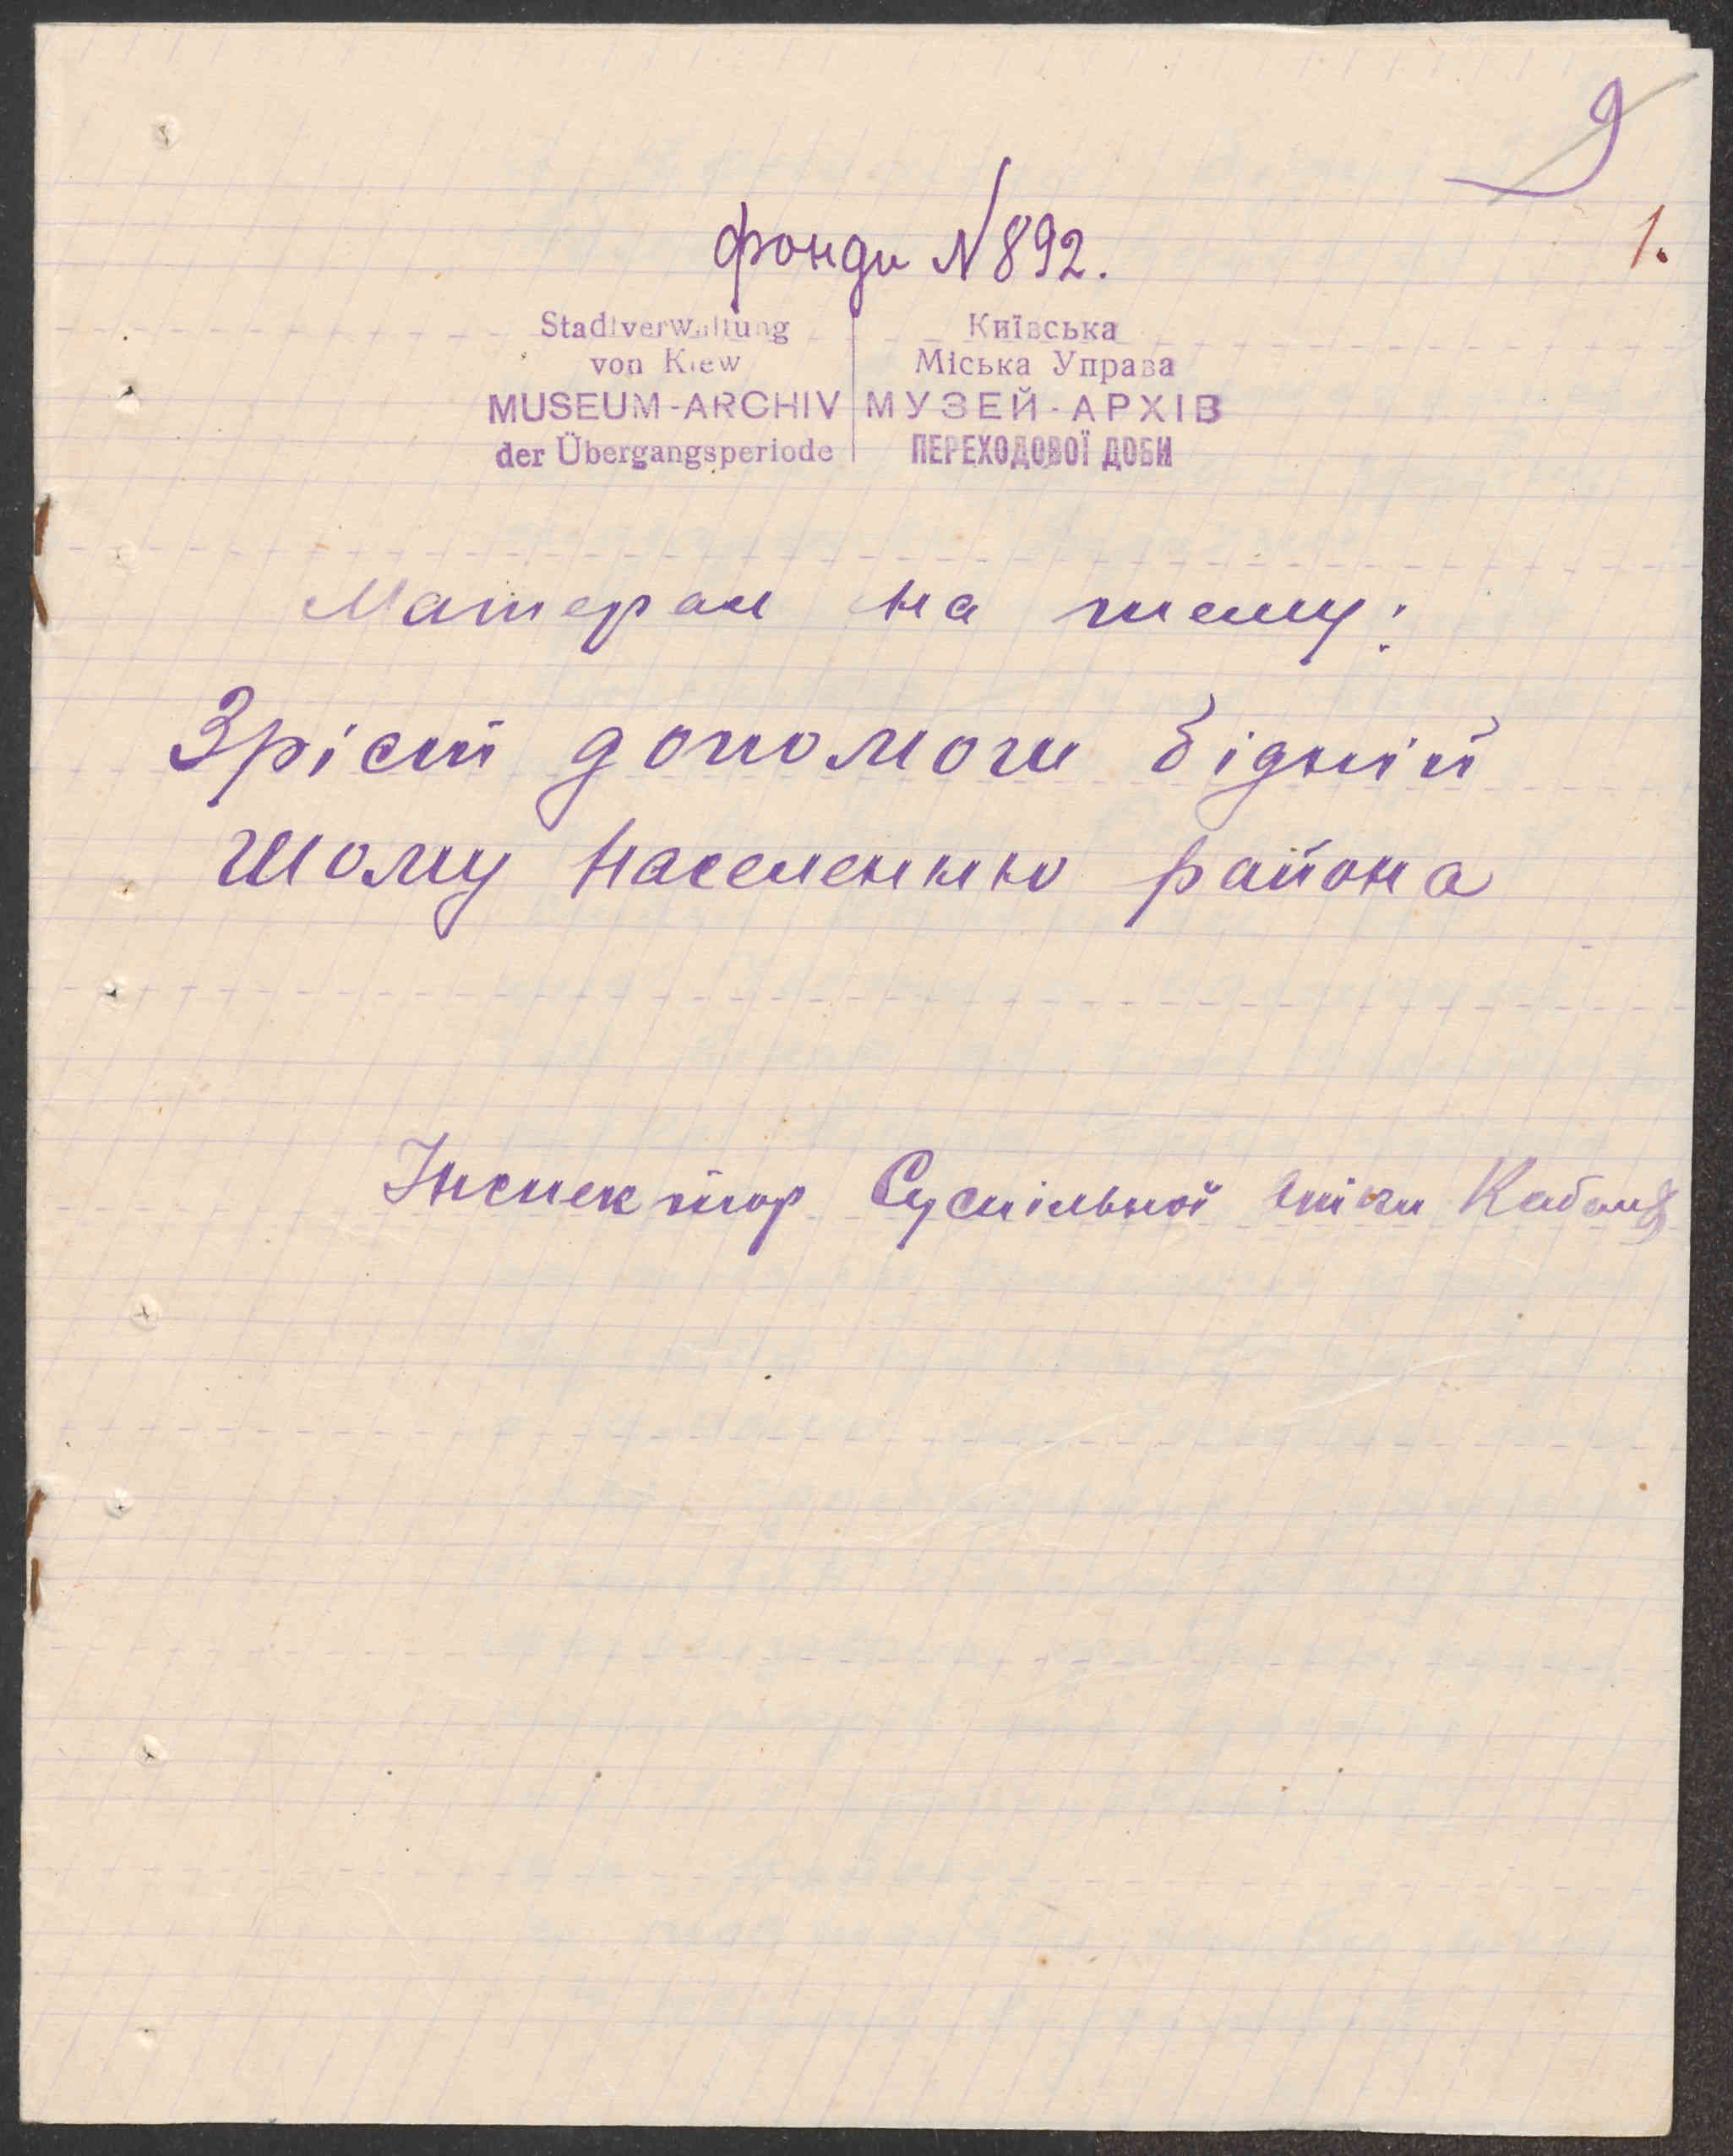 9
1.
фонди N 892.
Stadtverwaltung
von Kiew
MUSEUM-ARCHIV
der Übergangsperiode
Київська
Міська Управа
МУЗЕЙ-АРХІВ
ПЕРЕХОДОВОЇ ДОБИ
Матерал на тему:
Зріст допомоги бідній
шому населенню района
Інспектор Суспільної опіки